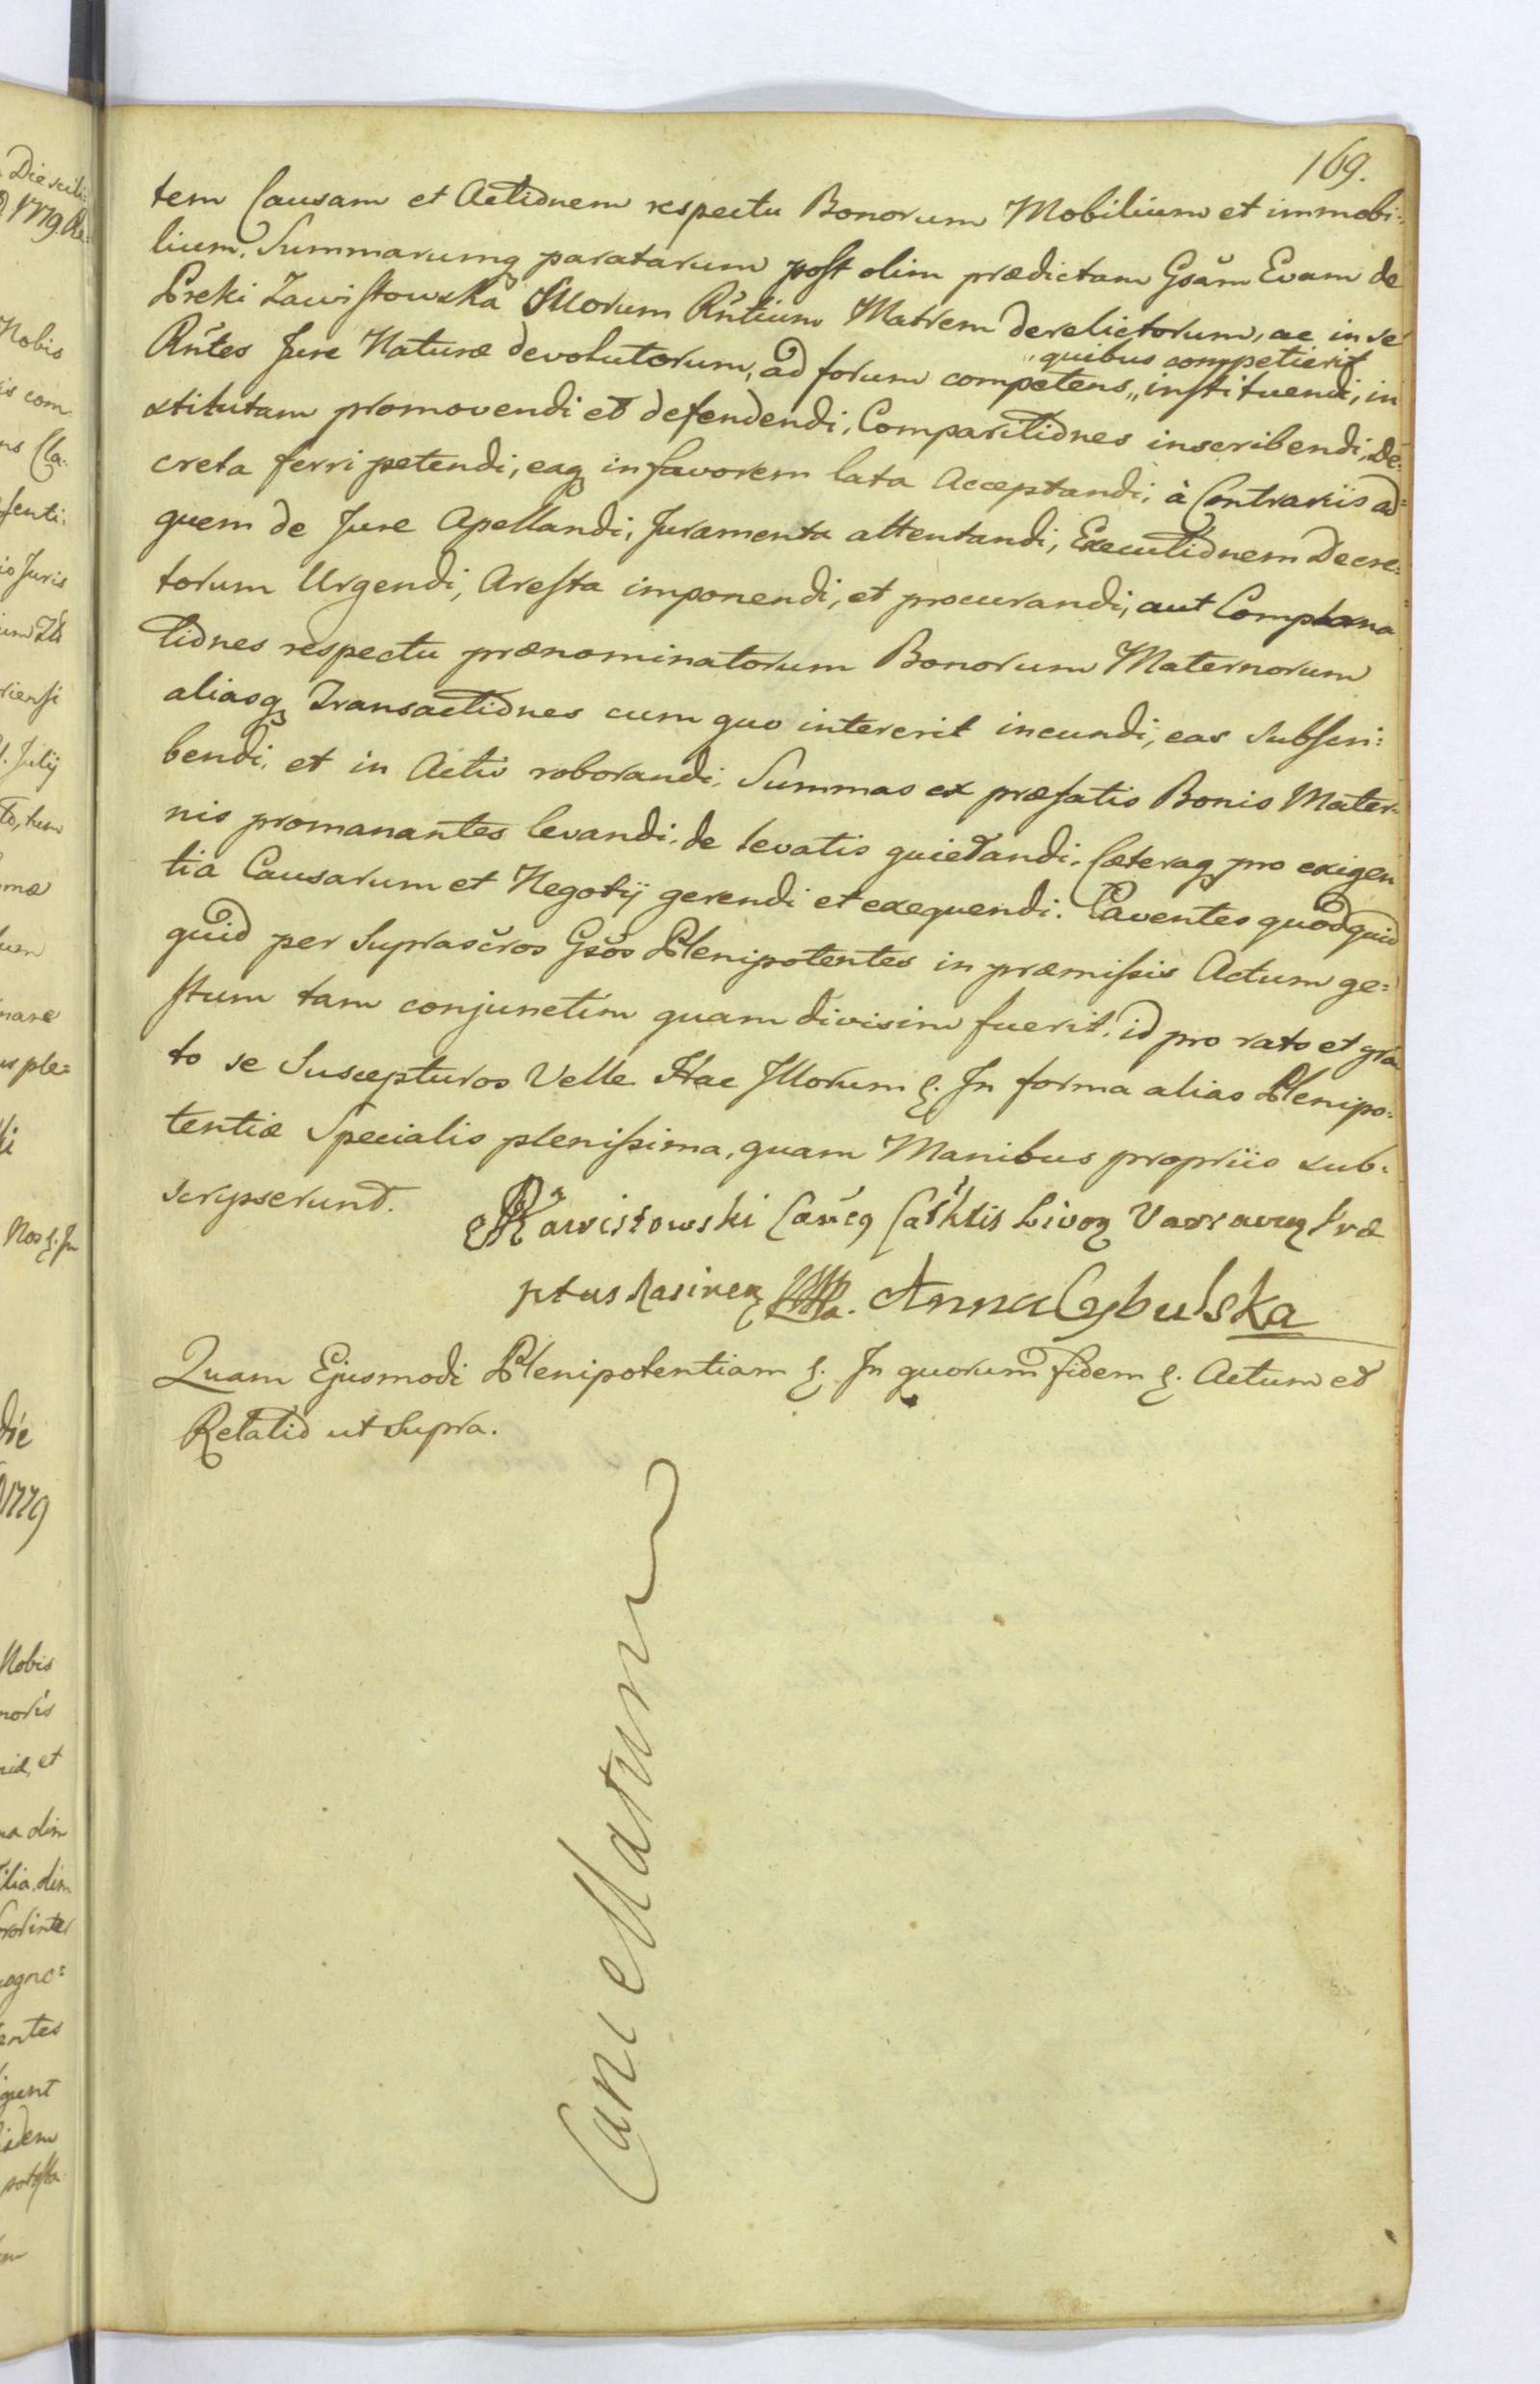 169.
tem Causam et Actionem respectu Bonorum Mobilium et immobi:
lium, Summarumq paratarum post olim prædictam Gsam Evam de
Preki Zawistowska Illorum Rntium Matrem derelictorum, ac in se
Rntes Jure Naturæ devolutorum, ad forum competens „ instituendi, in
„ quibus competierit
stitutam promovendi et defendendi, Comparitiones inscribendi, De:
creta ferri petendi, eaq in favorem lata Acceptandi, à Contrariis ad:
quem de Jure Apellandi, Juramenta attentandi, Executionem Decre:
torum Urgendi, Aresta imponendi, et procurandi, aut Complana
tiones respectu prænominatorum Bonorum Maternorum
aliasq Transactiones cum quo intererit ineundi, eas subscri:
bendi, et in Actis roborandi, Summas ex præfatis Bonis Mater:
nis promanantes levandi, de levatis quietandi, Cæteraq pro exigen
tia Causarum et Negotij gerendi et exequendi. Caventes quod quid
quid per Suprascros Gsos Plenipotentes in præmissis Actum ge:
stum tam conjunctim quam divisim fuerit, id pro rato et gra
to se Suscepturos Velle Hac Illorum &. In forma alias Plenipo:
tentiæ Specialis plenissima, quam Manibus propriis sub:
scripserunt.
Zawistowski
Anna Cybulska
Quam Ejusmodi Plenipotentiam &. In quorum fidem &. Actum et
Relatio ut supra.
Cancellatum
Die
1779
Nobis
is com
Juris
July
us ple:
Nos &. In
die
1779
Nobis
et